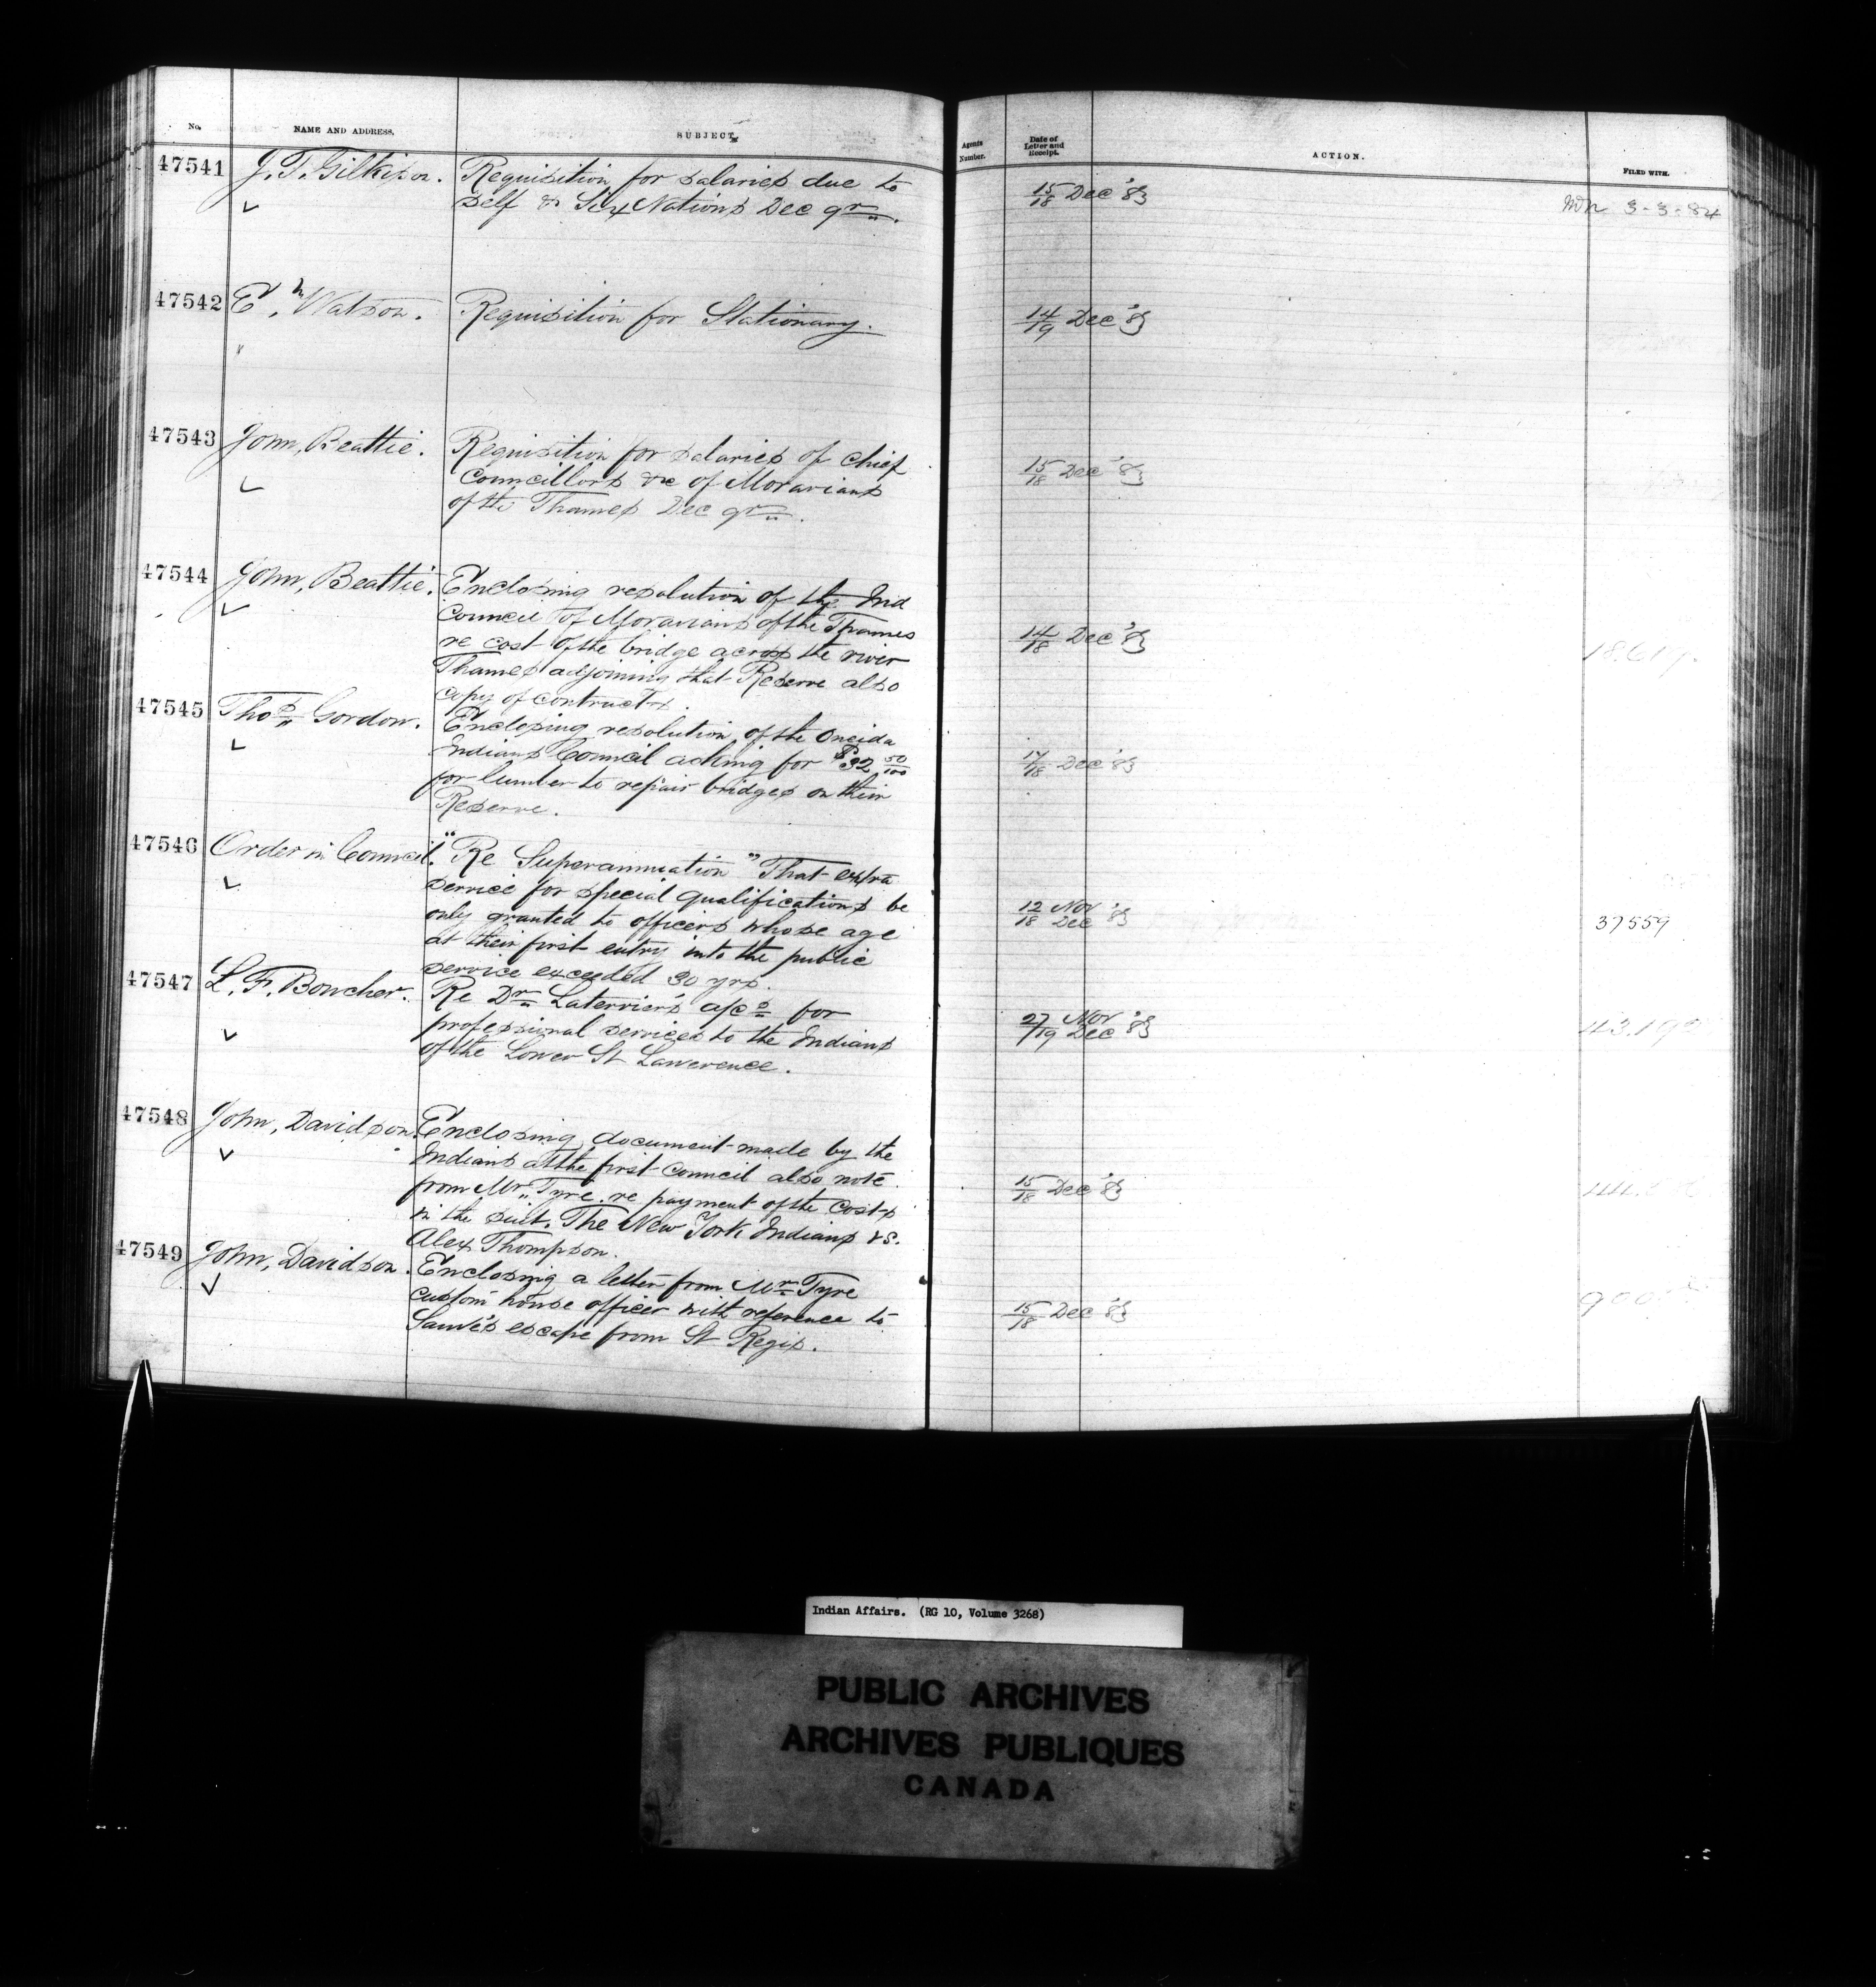 No.
NAME AND ADDRESS.
SUBJECT.
Agents Number.
Date of Letter and Receipt.
ACTION.
FILED WITH.
47541
J. T. Gilkison.
Requisition for salaries due to
self & Six Nations Dec qr.
15/18 Dec '83
3-3-84
47542
Watson.
Requisition for Stationary.
14/19 Dec '83
47543
John, Beattie.
Requisition for salaries of chief
Councillors &c of Moravians
of the Thames Dec qr.
15/18 Dec '83
47544
John, Beattie.
Enclosing resolution of the Ind
Council of Moravians of the Thames
re cost of the bridge across the river
Thames adjoining that Reserve also
copy of contracts.
14/18 Dec '83
47545
Thos Gordon.
Enclosing resolution of the Oneida
Indians Council asking for $32 50/100
for lumber to repair bridges on their
Reserve.
17/18 Dec '83
47546
Order in Council.
"Re Superannuation" That extra
service for special qualifications be
only granted to officers whose age
at their first entry into the public
service exceeded 30 yrs.
12 Nov
18 Dec '83
37559
47547
L. F. Boucher.
Re Dr Laterrier's a/cs for
professional services to the Indians
of the Lower St Lawerence.
27 Nov
19 Dec '83
47548
John, Davidson.
Enclosing document made by the
Indians at the first council also note
from Mr Tyre re payment of the costs
in the suit. The New York Indians vs.
Alex Thompson.
15/18 Dec '83
47549
John, Davidson.
Enclosing a letter from Mr Tyre
custom house officer with reference to
Sauvé's escape from St Regis.
15/18 Dec '83
Indian Affairs. (RG 10, Volume 3268)
PUBLIC ARCHIVES
ARCHIVES PUBLIQUES
CANADA